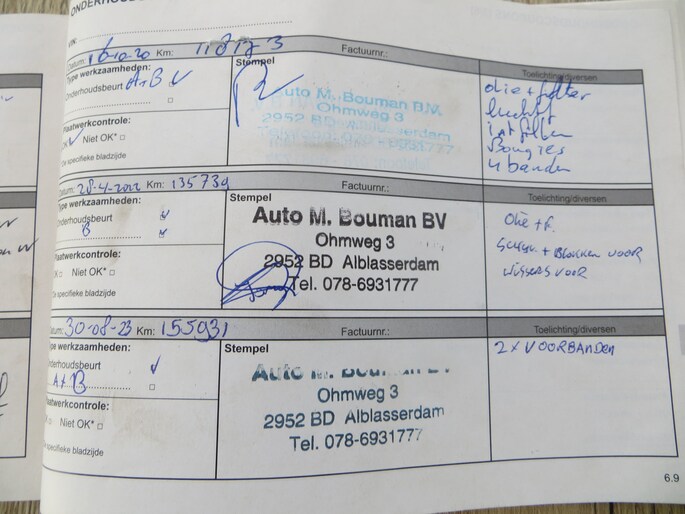 ONDERHOUDS
VIN:
Datum: 16-10-20 Km: 118173 Factuurnr.:
Type werkzaamheden: A+B Stempel Toelichting/diversen
Onderhoudsbeurt
Auto M. Bouman B.V.
Ohmweg 3
2952 BD Alblasserdam
olie + filter
luchtf
intfilter
Bougies
4 banden
Plaatwerkcontrole:
OK Niet OK*
Zie specifieke bladzijde
Datum: 28-4-2022 Km: 135739 Factuurnr.:
Type werkzaamheden: Stempel Toelichting/diversen
Onderhoudsbeurt
B
Auto M. Bouman BV
Ohmweg 3
2952 BD Alblasserdam
Tel. 078-6931777
Olie + f.
Schijv. + Blokken voor
wissers voor
Plaatwerkcontrole:
OK Niet OK*
Zie specifieke bladzijde
Datum: 30-08-23 Km: 155931 Factuurnr.:
Type werkzaamheden: Stempel Toelichting/diversen
Onderhoudsbeurt
A+B
Auto M. Bouman BV
Ohmweg 3
2952 BD Alblasserdam
Tel. 078-6931777
2x VOORBANDEN
Plaatwerkcontrole:
OK Niet OK*
Zie specifieke bladzijde
6.9